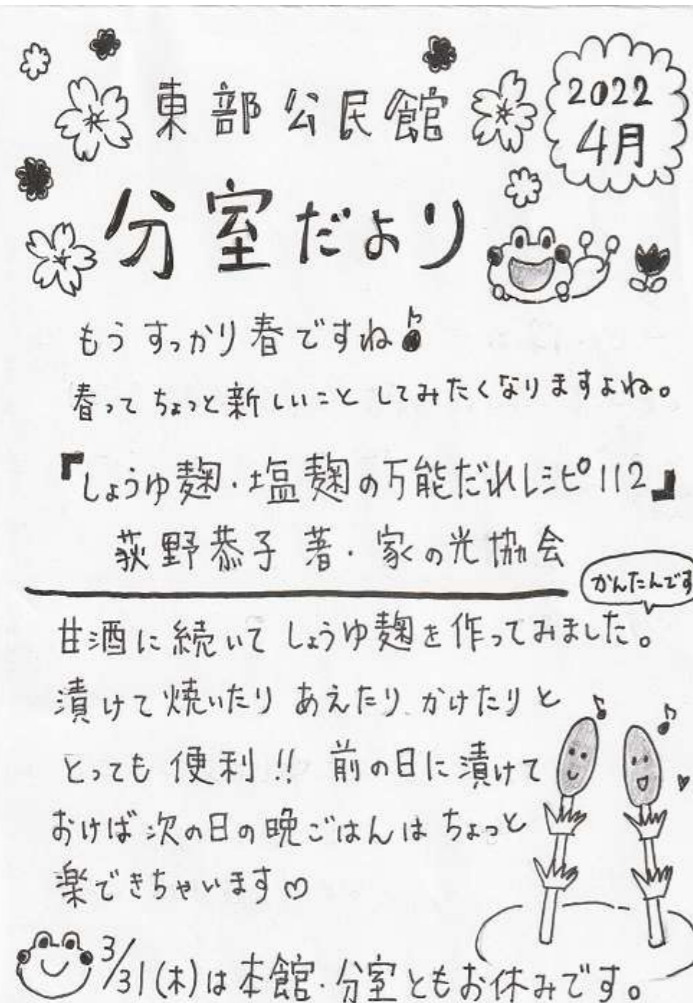 東部公民館
2022
4月
分室だより
もうすっかり春ですね♪
春ってちょっと新しいことしてみたくなりますよね。
『しょうゆ麹・塩麹の万能だれレシピ112』
荻野恭子 著・家の光協会
かんたんです
甘酒に続いてしょうゆ麹を作ってみました。
漬けて焼いたり あえたり、かけたりと
とっても便利!! 前の日に漬けて
おけば次の日の晩ごはんはちょっと
楽できちゃいます♡
3/31(木)は本館・分室ともお休みです。